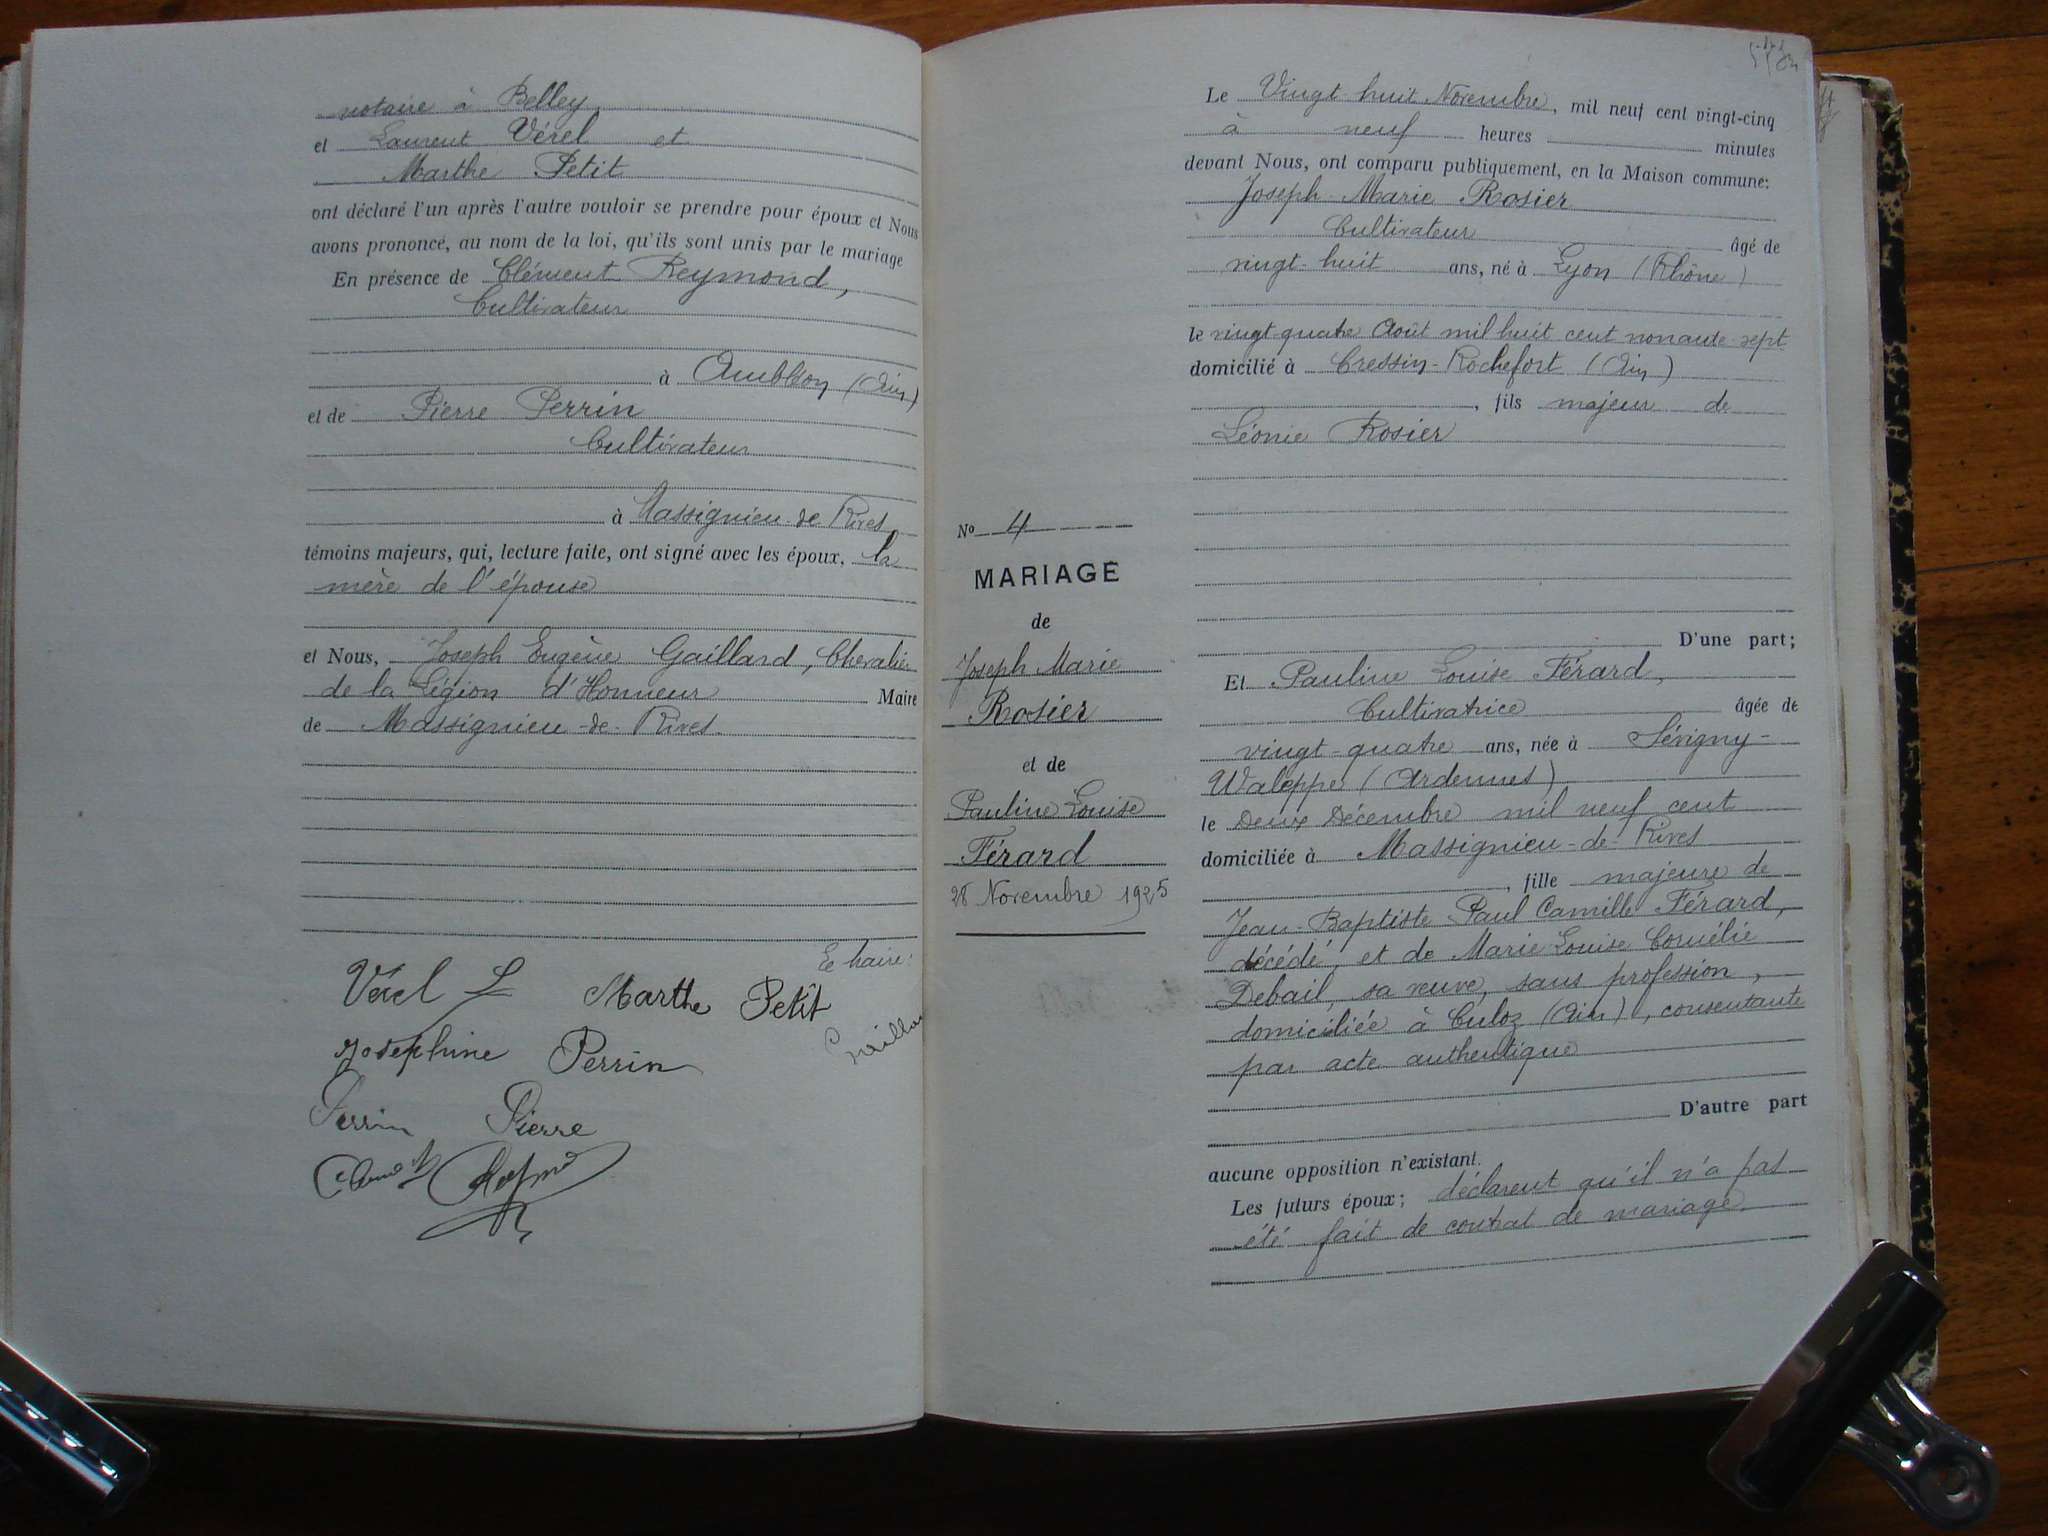 notaire à Belley
et Laurent Vérel et
Marthe Petit
ont déclaré l'un après l'autre vouloir se prendre pour époux et Nous
avons prononcé, au nom de la loi, qu'ils sont unis par le mariage
En présence de Clément Reymond,
Cultivateur
à Ambléon (Ain)
et de Pierre Perrin
Cultivateur
à Massignieu-de-Rives
témoins majeurs, qui, lecture faite, ont signé avec les époux, la
mère de l'épouse
et Nous, Joseph Eugène Gaillard, Chevalier
de la Légion d'Honneur Maire
de Massignieu-de-Rives.
Le Maire:
Vérel L Marthe Petit
Gaillard
Josephine Perrin
Perrin Pierre
Nº 4
MARIAGE
de
Joseph Marie
Rosier
et de
Pauline Louise
Férard
28 Novembre 1925
Le Vingt-huit Novembre, mil neuf cent vingt-cinq
à neuf heures minutes
devant Nous, ont comparu publiquement, en la Maison commune:
Joseph Marie Rosier
Cultivateur âgé de
vingt-huit ans, né à Lyon (Rhône)
le vingt-quatre Août mil huit cent nonante-sept
domicilié à Cressin-Rochefort (Ain)
, fils majeur de
Léonie Rosier
D'une part;
Et Pauline Louise Férard,
Cultivatrice âgée de
vingt-quatre ans, née à Sévigny-
Waleppe (Ardennes)
le Deux Décembre mil neuf cent
domiciliée à Massignieu-de-Rives
, fille majeure de
Jean-Baptiste Paul Camille Férard,
décédé, et de Marie Louise Cornélie
Debail, sa veuve, sans profession,
domiciliée à Culoz (Ain), consentante
par acte authentique
D'autre part
aucune opposition n'existant.
Les futurs époux; déclarent qu'il n'a pas
été fait de contrat de mariage.